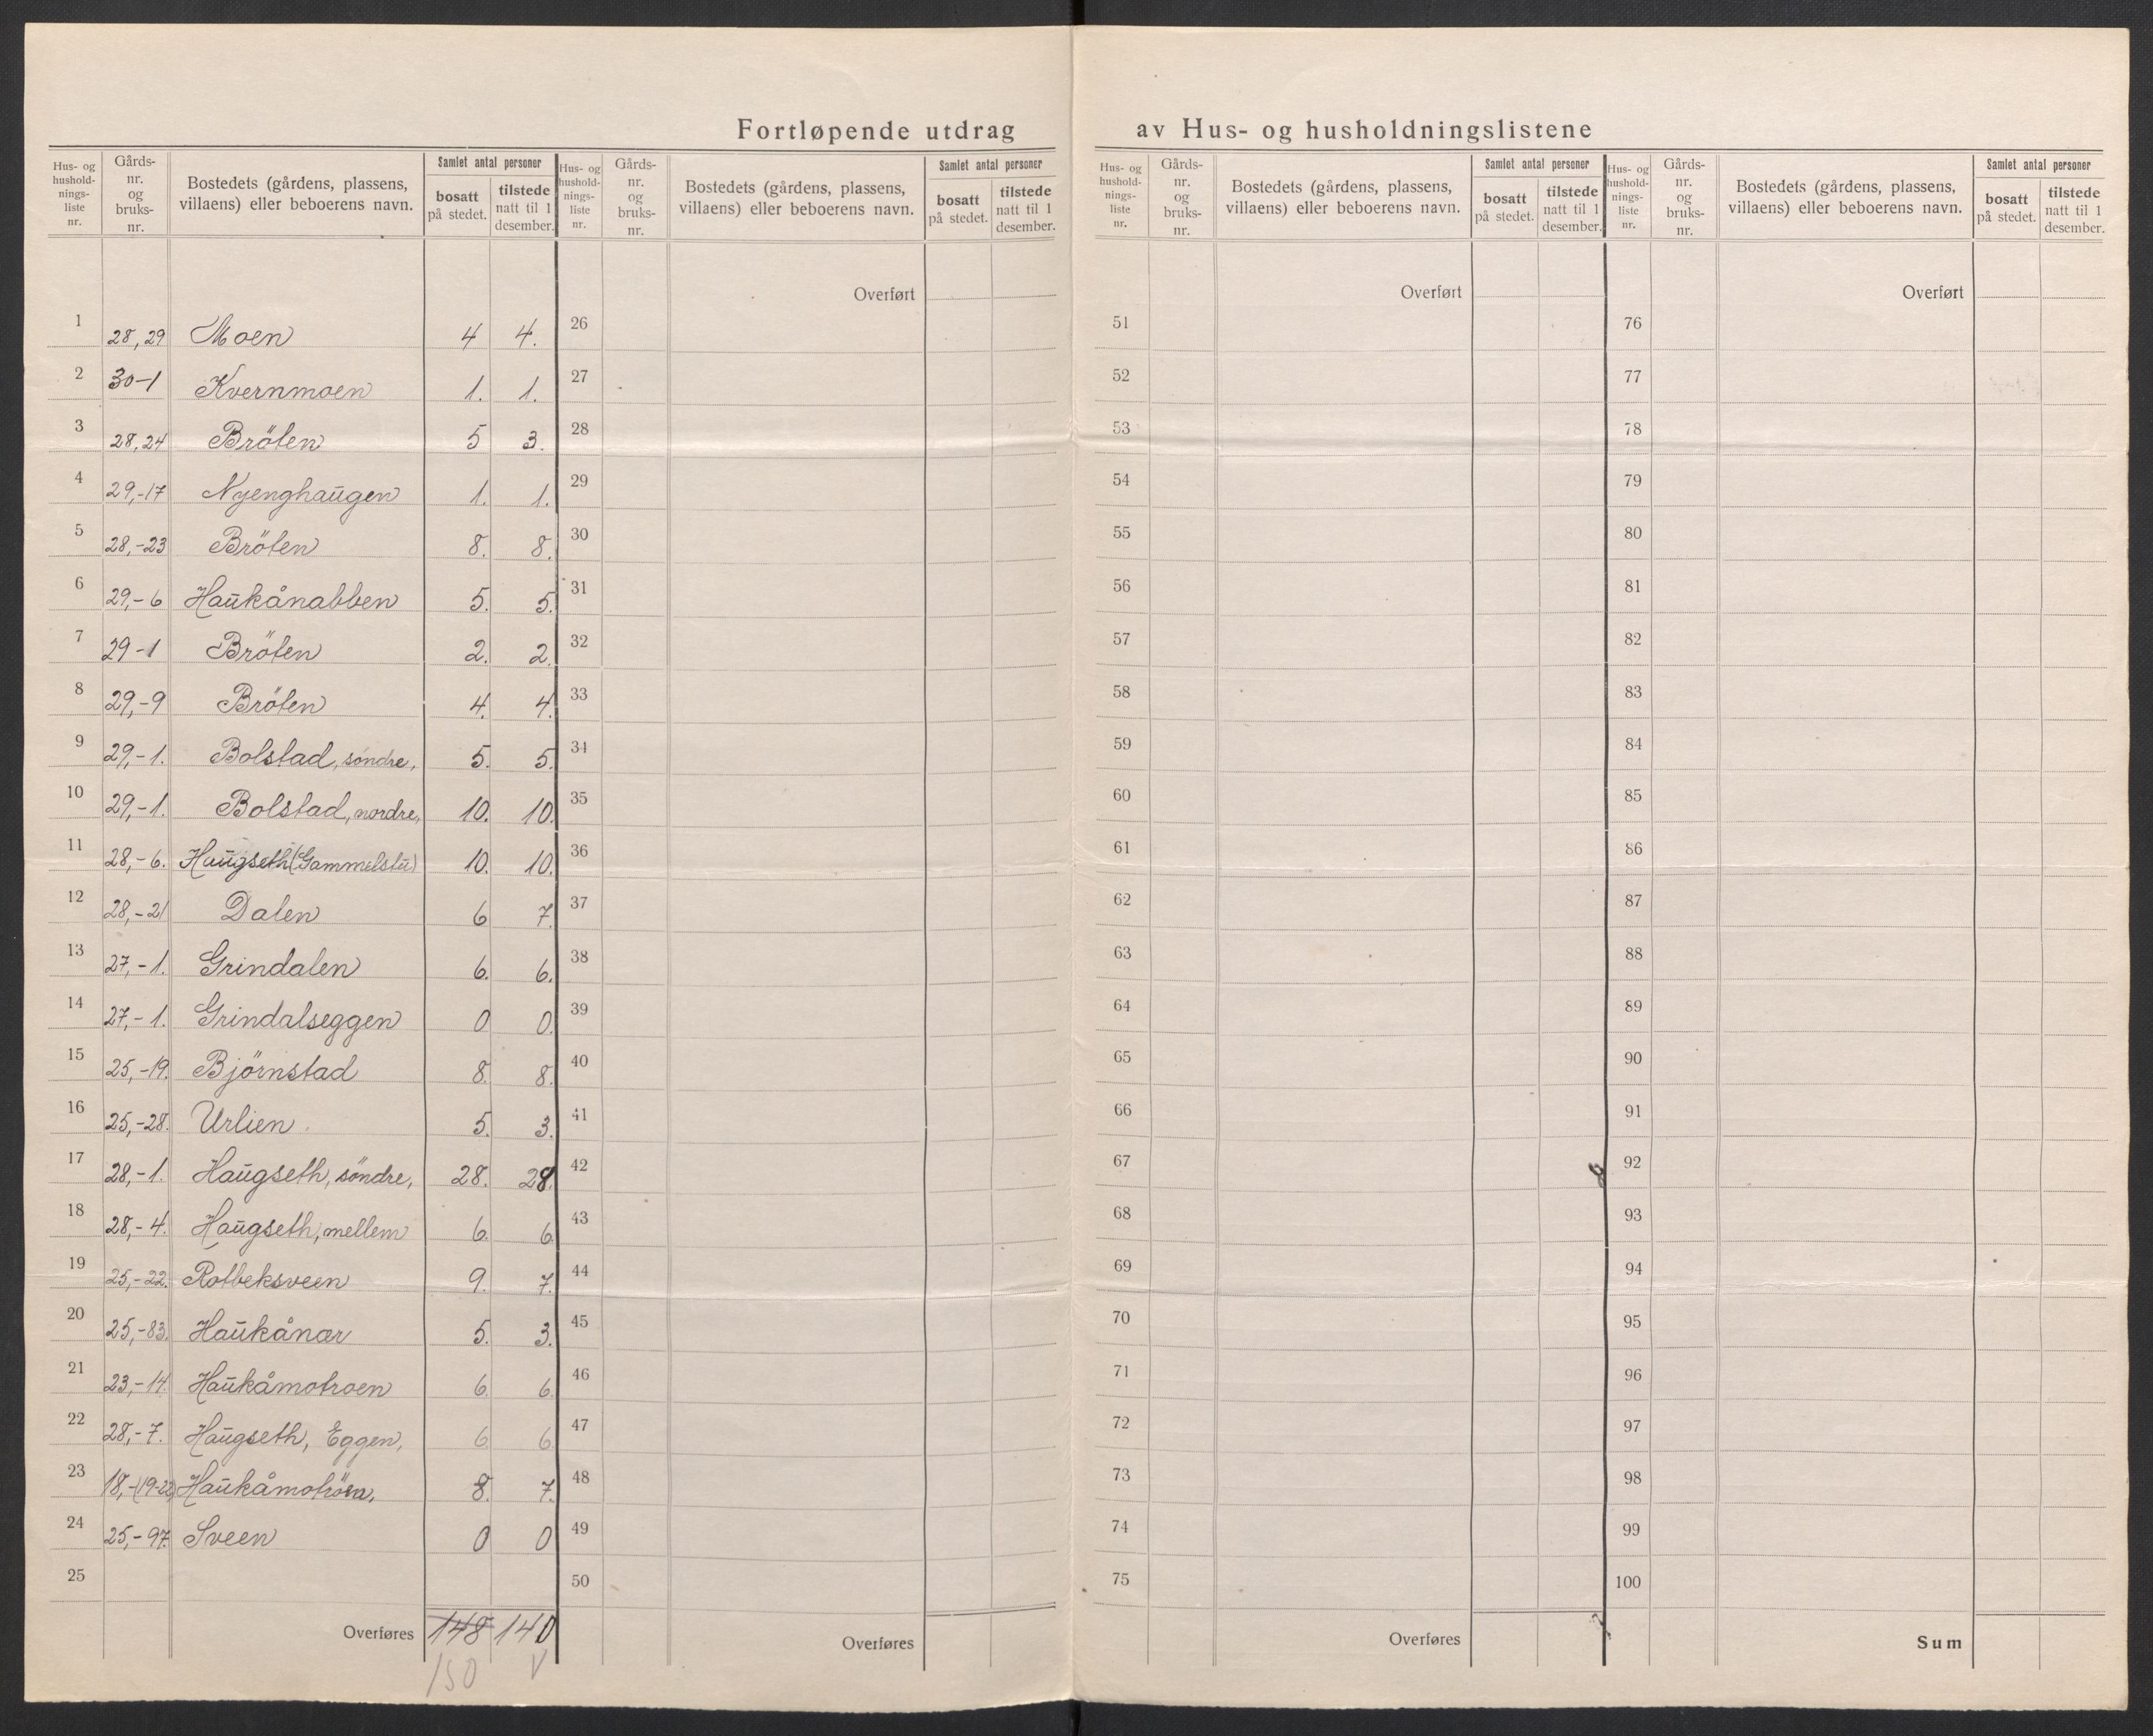 Fortløpende utdrag av Hus- og husholdningslistene
Hus- og hushold-nings-liste nr. | Gårds-nr. og bruks-nr. | Bostedets (gårdens, plassens, villaens) eller beboerens navn. | Samlet antal personer | bosatt på stedet. | tilstede natt til 1 desember.
Hus- og hushold-nings-liste nr. | Gårds-nr. og bruks-nr. | Bostedets (gårdens, plassens, villaens) eller beboerens navn. | Samlet antal personer | bosatt på stedet. | tilstede natt til 1 desember.
1 28,29 Moen 4 4.
2 30-1 Kvernmoen 1. 1.
3 28,24 Bröten 5 3.
4 29,-17 Nyenghaugen 1. 1.
5 28,-23 Bröten 8. 8.
6 29,-6 Haukånabben 5. 5.
7 29-1 Bröten 2. 2.
8 29,-9 Bröten 4. 4.
9 29,-1. Bolstad, söndre, 5. 5.
10 29,-1. Bolstad, nordre, 10. 10.
11 28,-6. Haugseth (Gammelstu) 10. 10.
12 28,-21 Dalen 6 7.
13 27,-1. Grindalen 6. 6.
14 27,-1. Grindalseggen 0 0.
15 25,-19. Björnstad 8. 8.
16 25,-28. Urlien 5. 3.
17 28,-1. Haugseth, söndre, 28. 28.
18 28,-4. Haugseth, mellem 6. 6
19 25,-22. Rotbeksveen 9. 7.
20 25,-83. Haukånær 5. 3.
21 23,-14. Haukåmotroen 6. 6.
22 28,-7. Haugseth, Eggen, 6 6.
23 18,-(19-22) Haukåmotröen, 8. 7.
24 25,-97. Sveen 0 0
25
Overføres 148 140
150 V
Overført
26
27
28
29
30
31
32
33
34
35
36
37
38
39
40
41
42
43
44
45
46
47
48
49
50
Overføres
Hus- og hushold-nings-liste nr. | Gårds-nr. og bruks-nr. | Bostedets (gårdens, plassens, villaens) eller beboerens navn. | Samlet antal personer | bosatt på stedet. | tilstede natt til 1 desember.
Overført
51
52
53
54
55
56
57
58
59
60
61
62
63
64
65
66
67
68
69
70
71
72
73
74
75
Overføres
Hus- og hushold-nings-liste nr. | Gårds-nr. og bruks-nr. | Bostedets (gårdens, plassens, villaens) eller beboerens navn. | Samlet antal personer | bosatt på stedet. | tilstede natt til 1 desember.
Overført
76
77
78
79
80
81
82
83
84
85
86
87
88
89
90
91
92
93
94
95
96
97
98
99
100
Sum